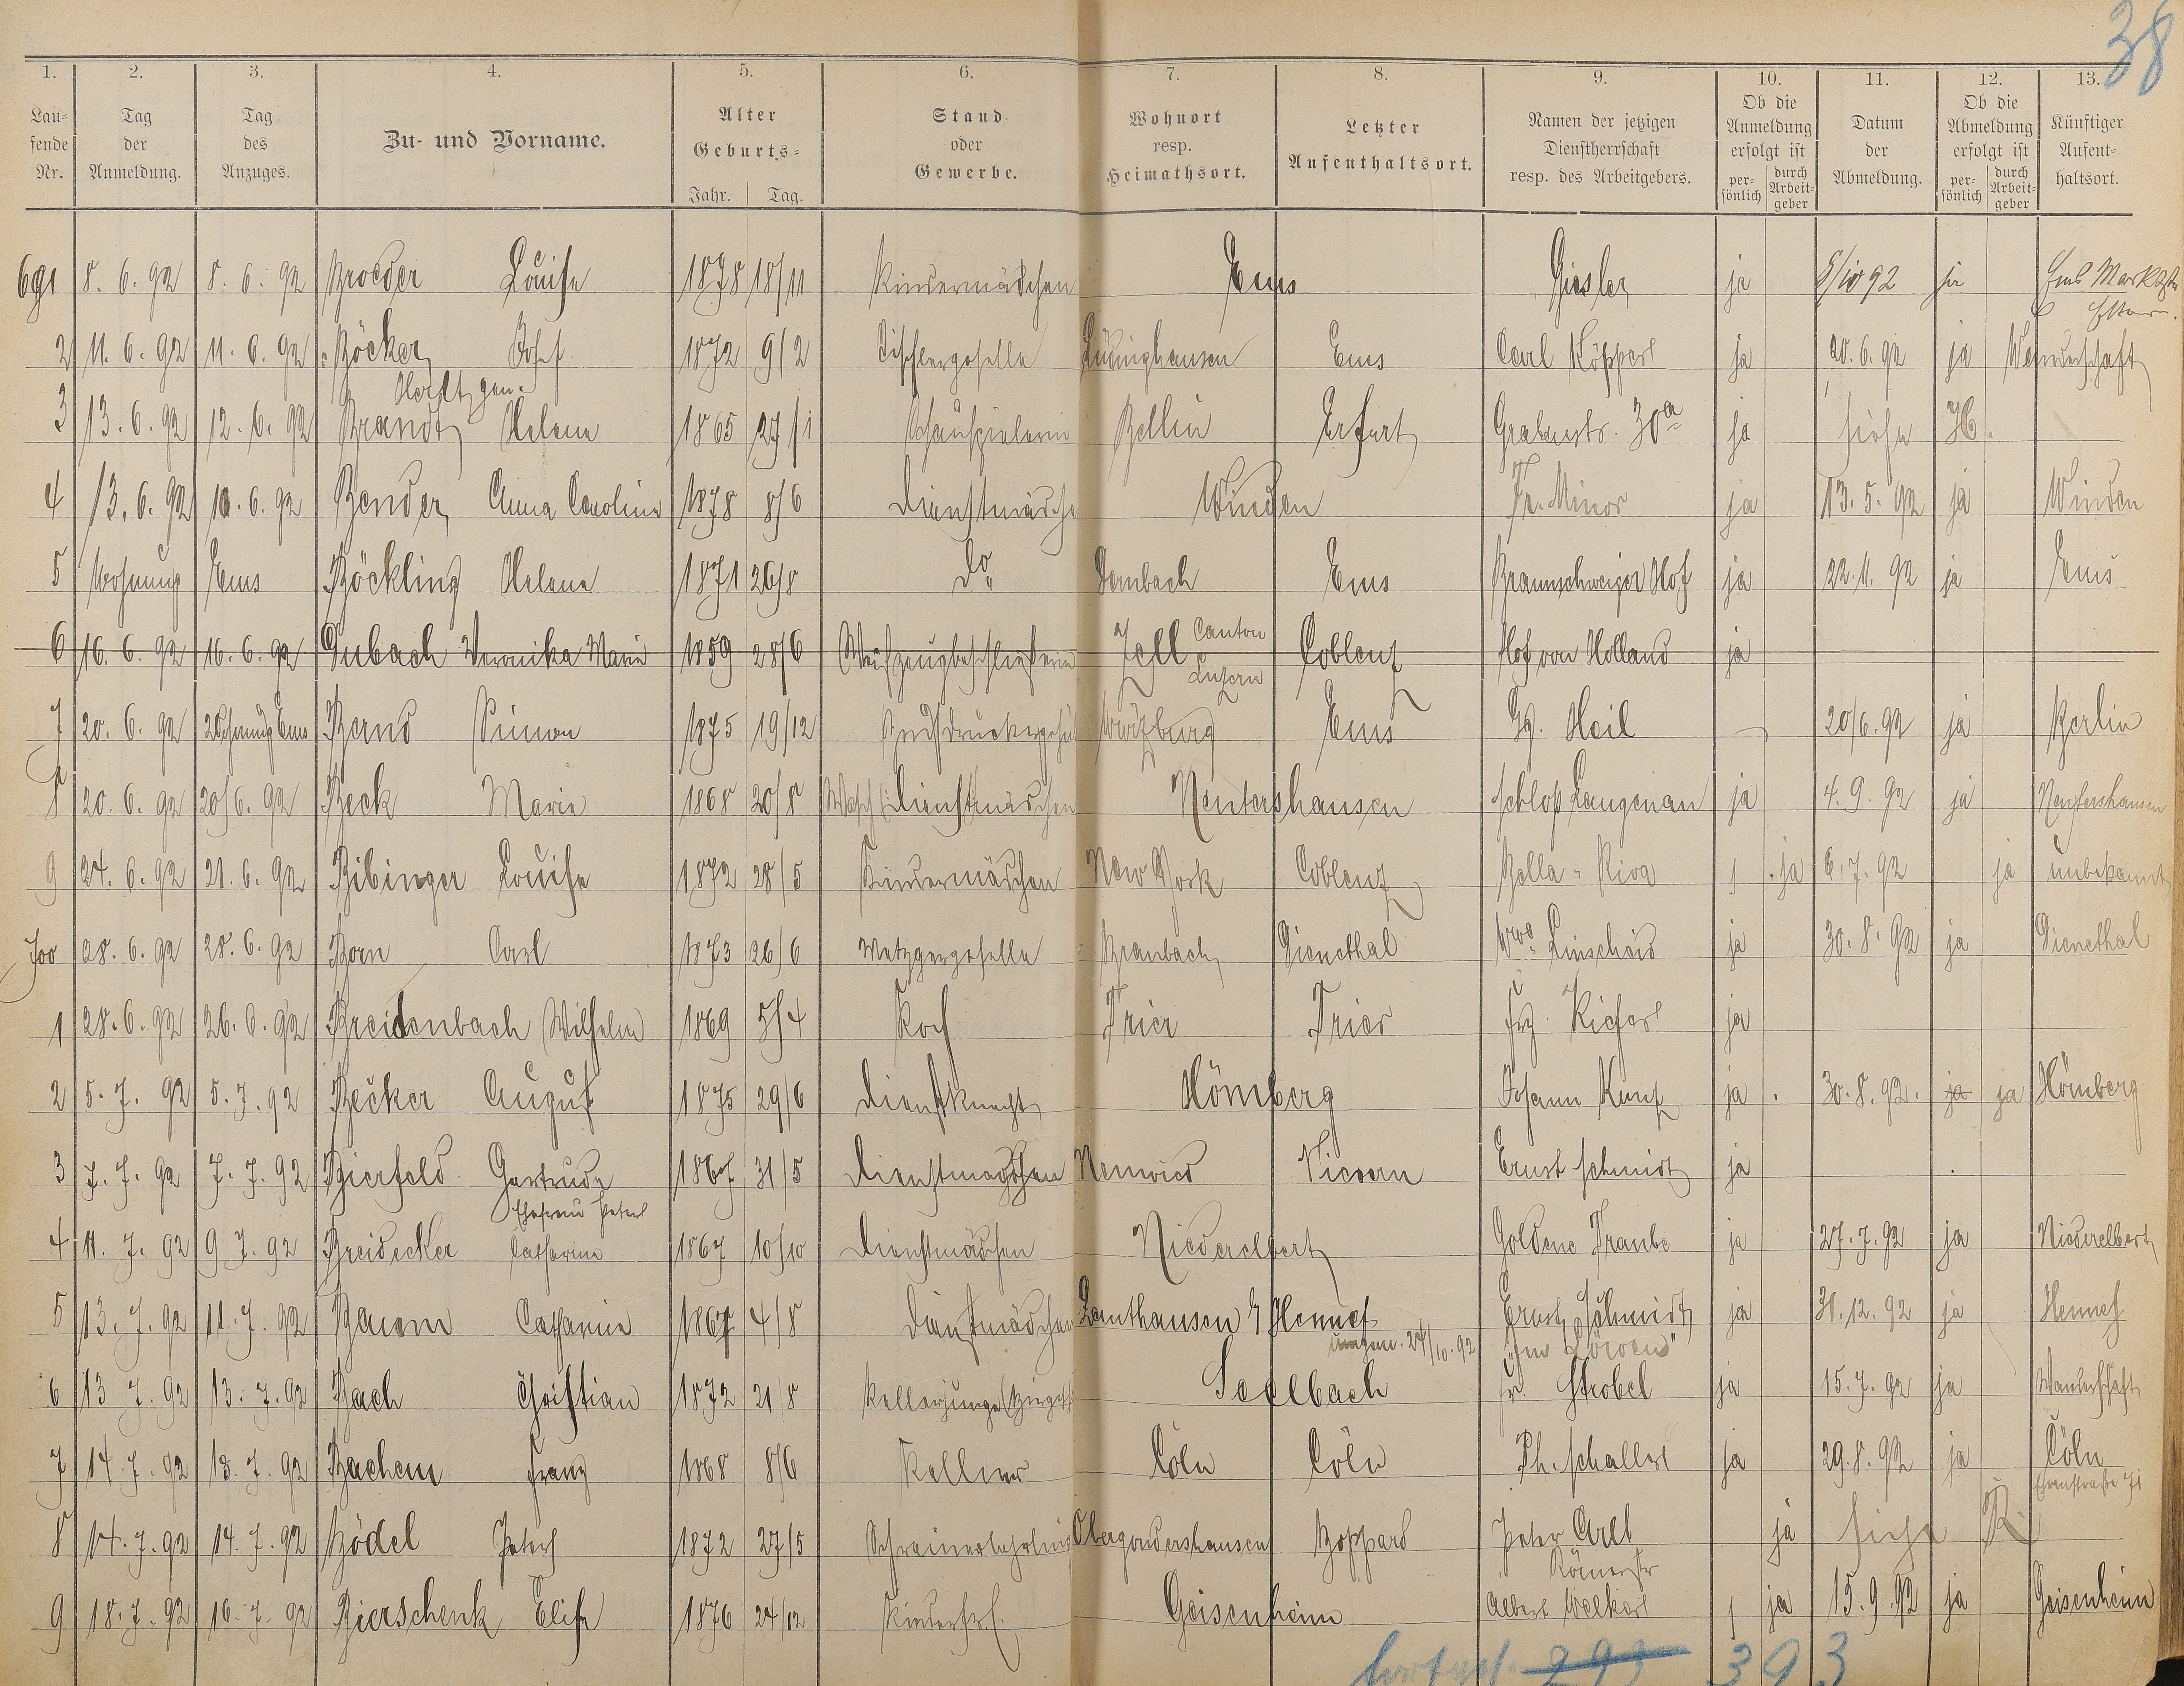 38
1. 2. 3. 4. 5. 6. 7. 8. 9. 10. 11. 12. 13.
Lau-
fende
Nr.
Tag
der
Anmeldung.
Tag
des
Anzuges.
Zu- und Vorname.
Alter
Geburts-
Jahr. Tag.
Stand
oder
Gewerbe.
Wohnort
resp.
Heimathsort.
Letzter
Aufenthaltsort.
Namen der jetzigen
Dienstherrschaft
resp. des Arbeitgebers.
Ob die
Anmeldung
erfolgt ist
per-
sönlich
durch
Arbeit-
geber
Datum
der
Abmeldung.
Ob die
Abmeldung
erfolgt ist
per-
sönlich
durch
Arbeit-
geber
Künftiger
Aufent-
haltsort.
691 8. 6. 92 8. 6. 92 Broeder Louise 1878 18/11 Kindermädchen Ems Giesler ja 8/10 92 ja Ems
2 11. 6. 92 11. 6. 92 Böcker Josef 1872 9/2 Tischlergeselle Lüdinghausen Ems Carl ja 20. 6. 92 ja Wanderschaft
Herdt gen.
3 13. 6. 92 12. 6. 92 Brandt Helene 1865 27/1 Schauspielerin Berlin Erfurt Grabenstr. 30a ja siehe H.
4 13. 6. 92 10. 6. 92 Bender Anna Caroline 1878 8/6 Dienstmädchen Winden Fr. Minor ja 13. 5. 92 ja Winden
5 Wohnung Ems Böckling Helene 1871 26/8 do Dombach Ems Braunschweiger Hof ja 22. 11. 92 ja Ems
6 16. 6. 92 16. 6. 92 Dubach Veronika Marie 1859 28/6 Weißzeugbeschließerin Zell Canton Luzern Coblenz Hof von Holland ja
7 20. 6. 92 Wohnung Ems Bernd Simon 1875 19/12 Würzburg Ems Gg. Heil 20/6. 92 ja Berlin
8 20. 6. 92 20/6. 92 Beck Marie 1868 20/8 Wasch Dienstmädchen Nentershausen Schloß Langenau ja 4. 9. 92 ja Nentershausen
9 24. 6. 92 21. 6. 92 Bibinger Louise 1872 28/5 Kindermädchen New York Coblenz Bella-Riva ja 6. 7. 92 ja unbekannt
700 28. 6. 92 28. 6. 92 Born Carl 1873 26/6 Metzgergeselle Braubach Dienethal Wwe Linscheid ja 30. 8. 92 ja Dienethal
1 28. 6. 92 26. 6. 92 Breidenbach Wilhelm 1869 5/4 Koch Trier Trier ja
2 5. 7. 92 5. 7. 92 Becker August 1875 29/6 Dienstknecht Hömberg Johann Kunz ja 30. 8. 92. ja ja Hömberg
3 7. 7. 92 7. 7. 92 Bierfeld Gertrude 1867 31/5 Dienstmädchen Neuwied Vievern Ernst Schmidt ja
Ehefrau Peter
4 11. 7. 92 9. 7. 92 Breidecker Catharine 1867 10/10 Dienstmädchen Niederelbert Goldene Traube ja 27. 7. 92 ja Niederelbert
5 13. 7. 92 11. 7. 92 Baum Catharine 1867 4/8 Dienstmädchen Lauthausen Hennef Ernst Schmidt ja 31. 12. 92 ja Hennef
24/10. 92 "im Löwen"
6 13 7. 92 13. 7. 92 Bach Christian 1872 21/8 Kellerjunge Seelbach Fr. Strobel ja 15. 7. 92 ja Wanderschaft
7 14. 7. 92 13. 7. 92 Bachem Franz 1868 8/6 Kellner Cöln Cöln Ph. Schaller ja 29. 8. 92 ja Cöln
Ehrenstraße 71
8 14. 7. 92 14. 7. 92 Bödel Peter 1872 27/5 Schreinerlehrling Obergondershausen Boppard Peter Arll ja siehe R.
Römerstr
9 18. 7. 92 16. 7. 92 Bierschenk Elise 1876 24/12 Kinderfrl. Geisenheim Albert ja 15. 9. 92 ja Geisenheim
293 393